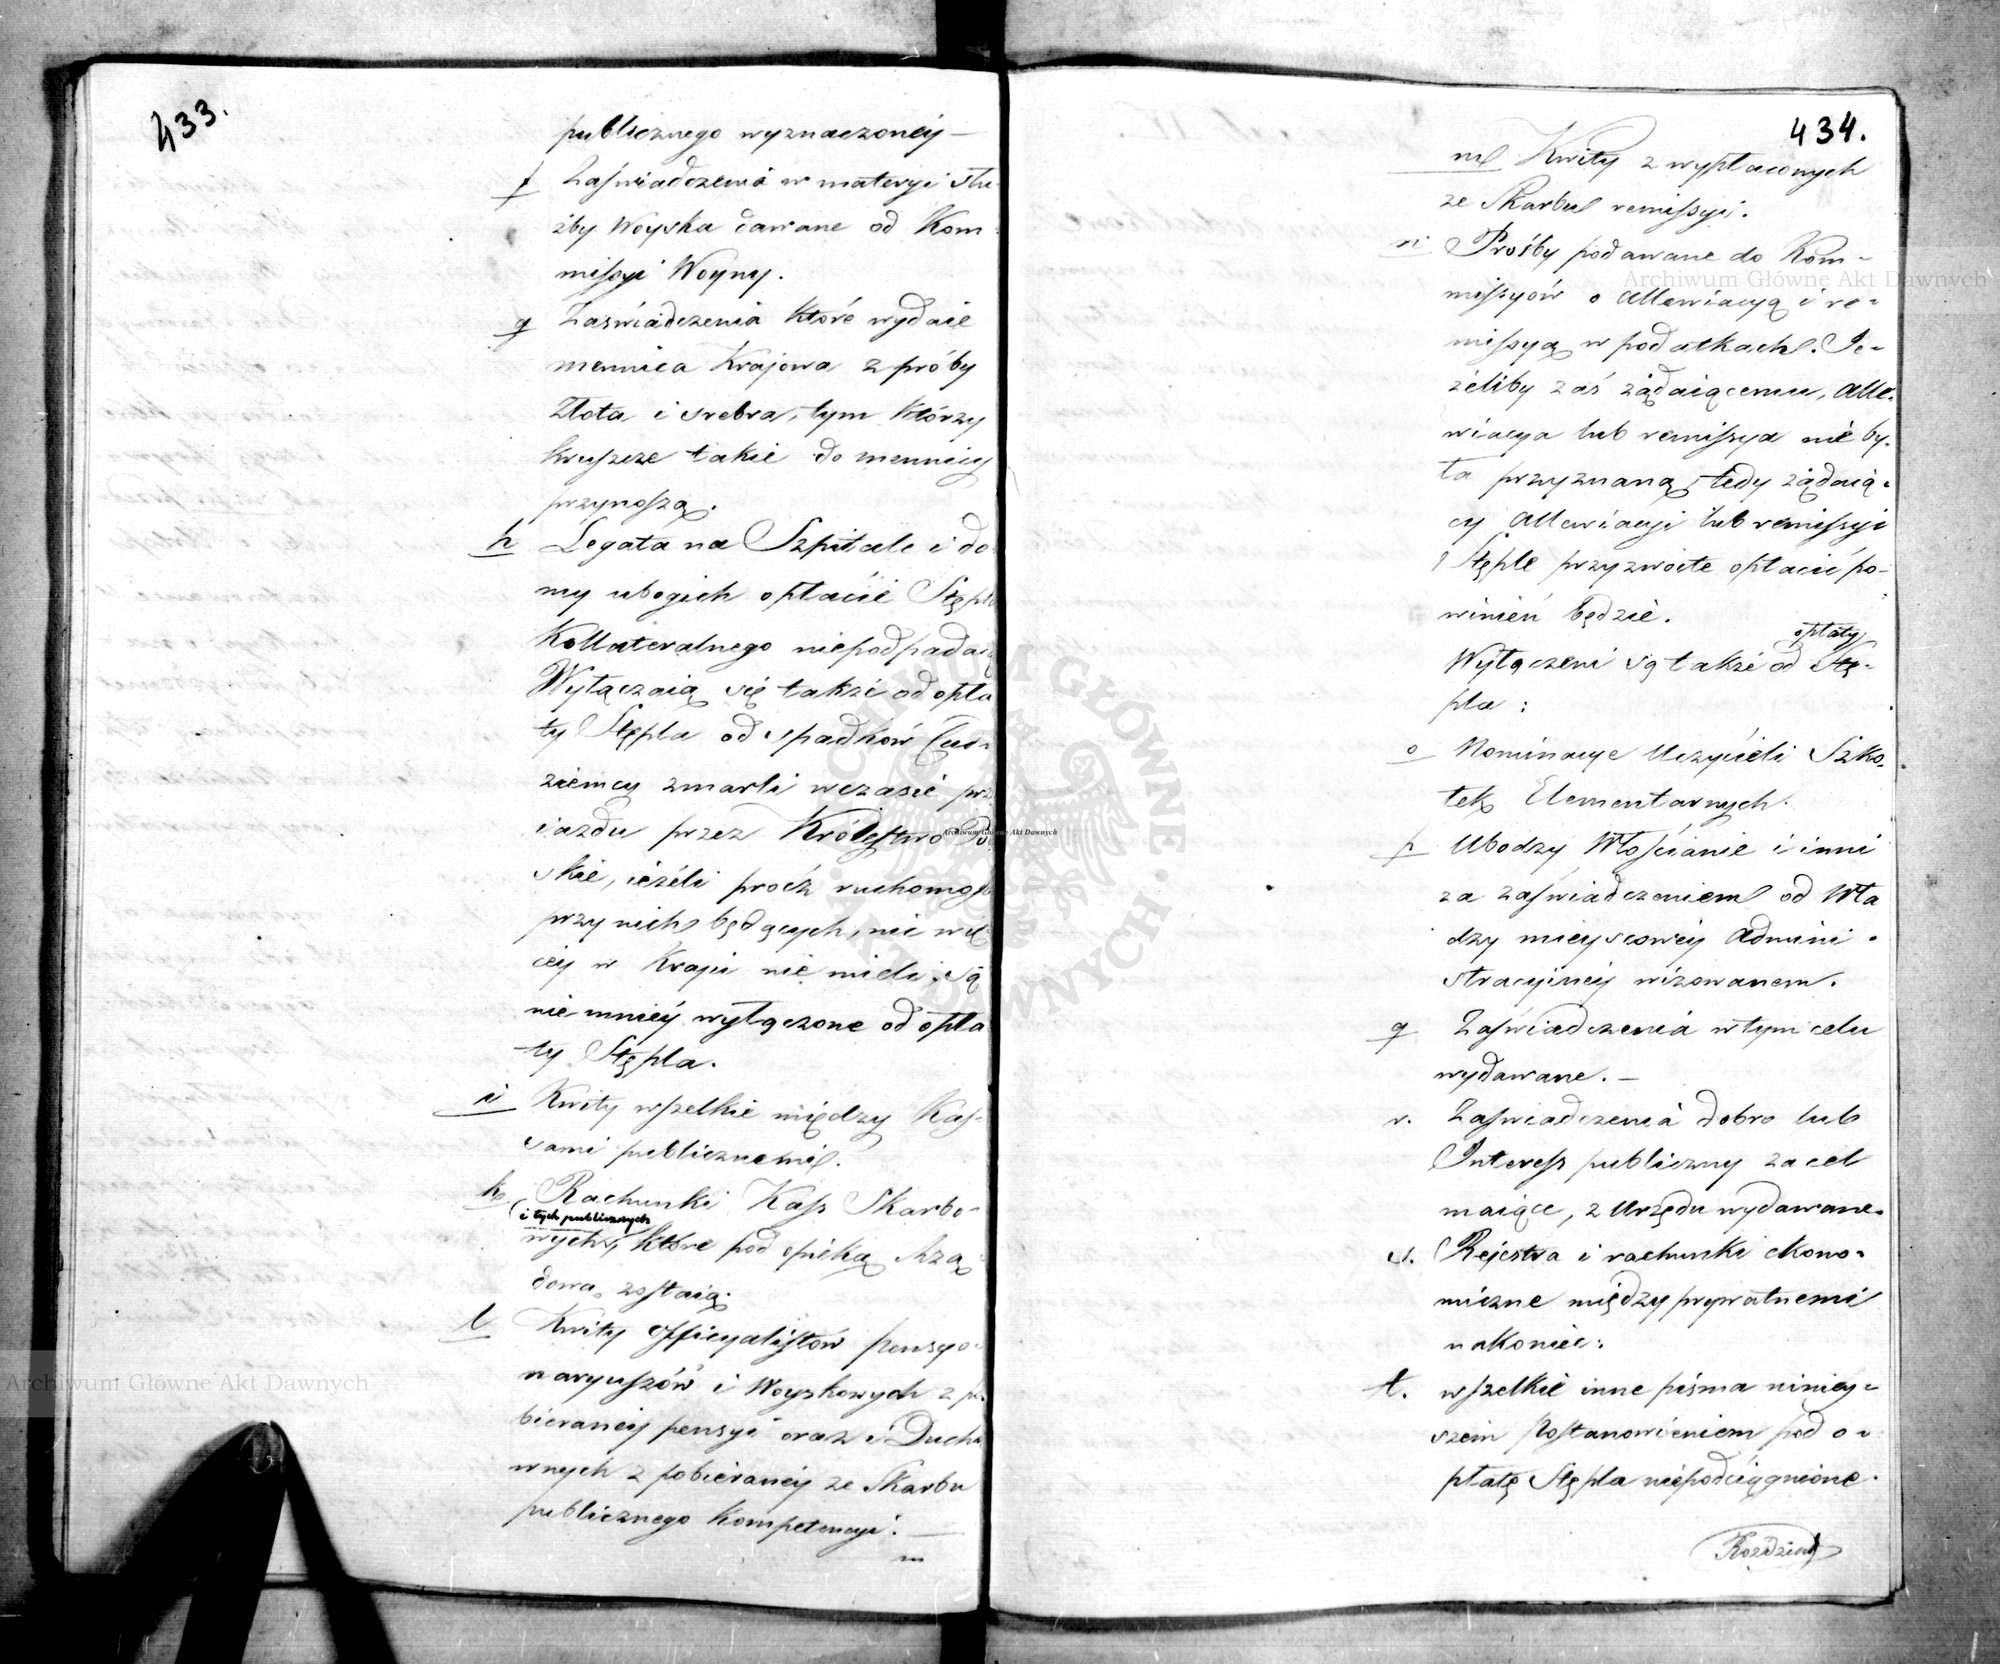 433.
publicznego wyznaczoney —
f Zaświadczenia w materyi słu-
żby Woyska dawane od Kom-
missyi Woyny.
g Zaświadczenia które wydaie
mennica Krajowa z próby
złota i srebra, tym którzy
kruszcze takie do mennicy
przynoszą.
h Legata na Szpitale i do-
my ubogich opłacie Stępla
Kollateralnego niepodpadaią
Wyłączaią się także od opła
ty Stępla od spadków Cud-
ziemcy zmarli w czasie prze
iazdu przez Królestwo Pol
skie, ieżeli prócz ruchomości
przy nich będących, nic wię
cey w Kraju nie mieli; są
nie mniey wyłączone od opła
ty Stępla.
i Kwity wszelkie między Kas-
sami publicznemi.
k Rachunki Kass Skarbo-
i tych publicznych
wych, które pod opieką Rzą
dową zostaią.
l Kwity officyalistów pensyo-
naryuszów i Woyskowych z po
bieraney pensyi oraz i Ducho
wnych z pobieraney ze Skarbu
publicznego Kompetencyi. —
m
434.
m Kwity z wypłaconych
ze Skarbu remissyi.
n Prośby podawane do Kom-
missyów o Allewiacyą i re-
missyą w podatkach. Je-
żeliby zaś żądaiącemu, Alle-
wiacya lub remissya nie by-
ła przyznaną, tedy żądaią-
cy Allewiacyi lub remissyi
Stęple przyzwoite opłacić po-
winien będzie.
opłaty
Wyłączeni są także od Stę-
pla:
o Nominacye Uczycieli Szko-
łek Elementarnych.
p Ubodzy Włościanie i inni
za zaświadczeniem od Wła
dzy mieyscowey Admini-
stracyiney wizowanem.
q Zaświadczenia w tym celu
wydawane. —
r. Zaświadczenia dobro lub
Interess publiczny za cel
maiące, z Urzędu wydawane.
s. Rejestra i rachunki ekono-
miczne między prywatnemi
nakoniec:
t. wszelkie inne pisma niniey-
szem Postanowieniem pod o-
płatę Stępla niepodciągnione.
Rozdział
Archiwum Główne Akt Dawnych
Archiwum Główne Akt Dawnych
Archiwum Główne Akt Dawnych
ARCHIWUM GŁÓWNE AKT DAWNYCH